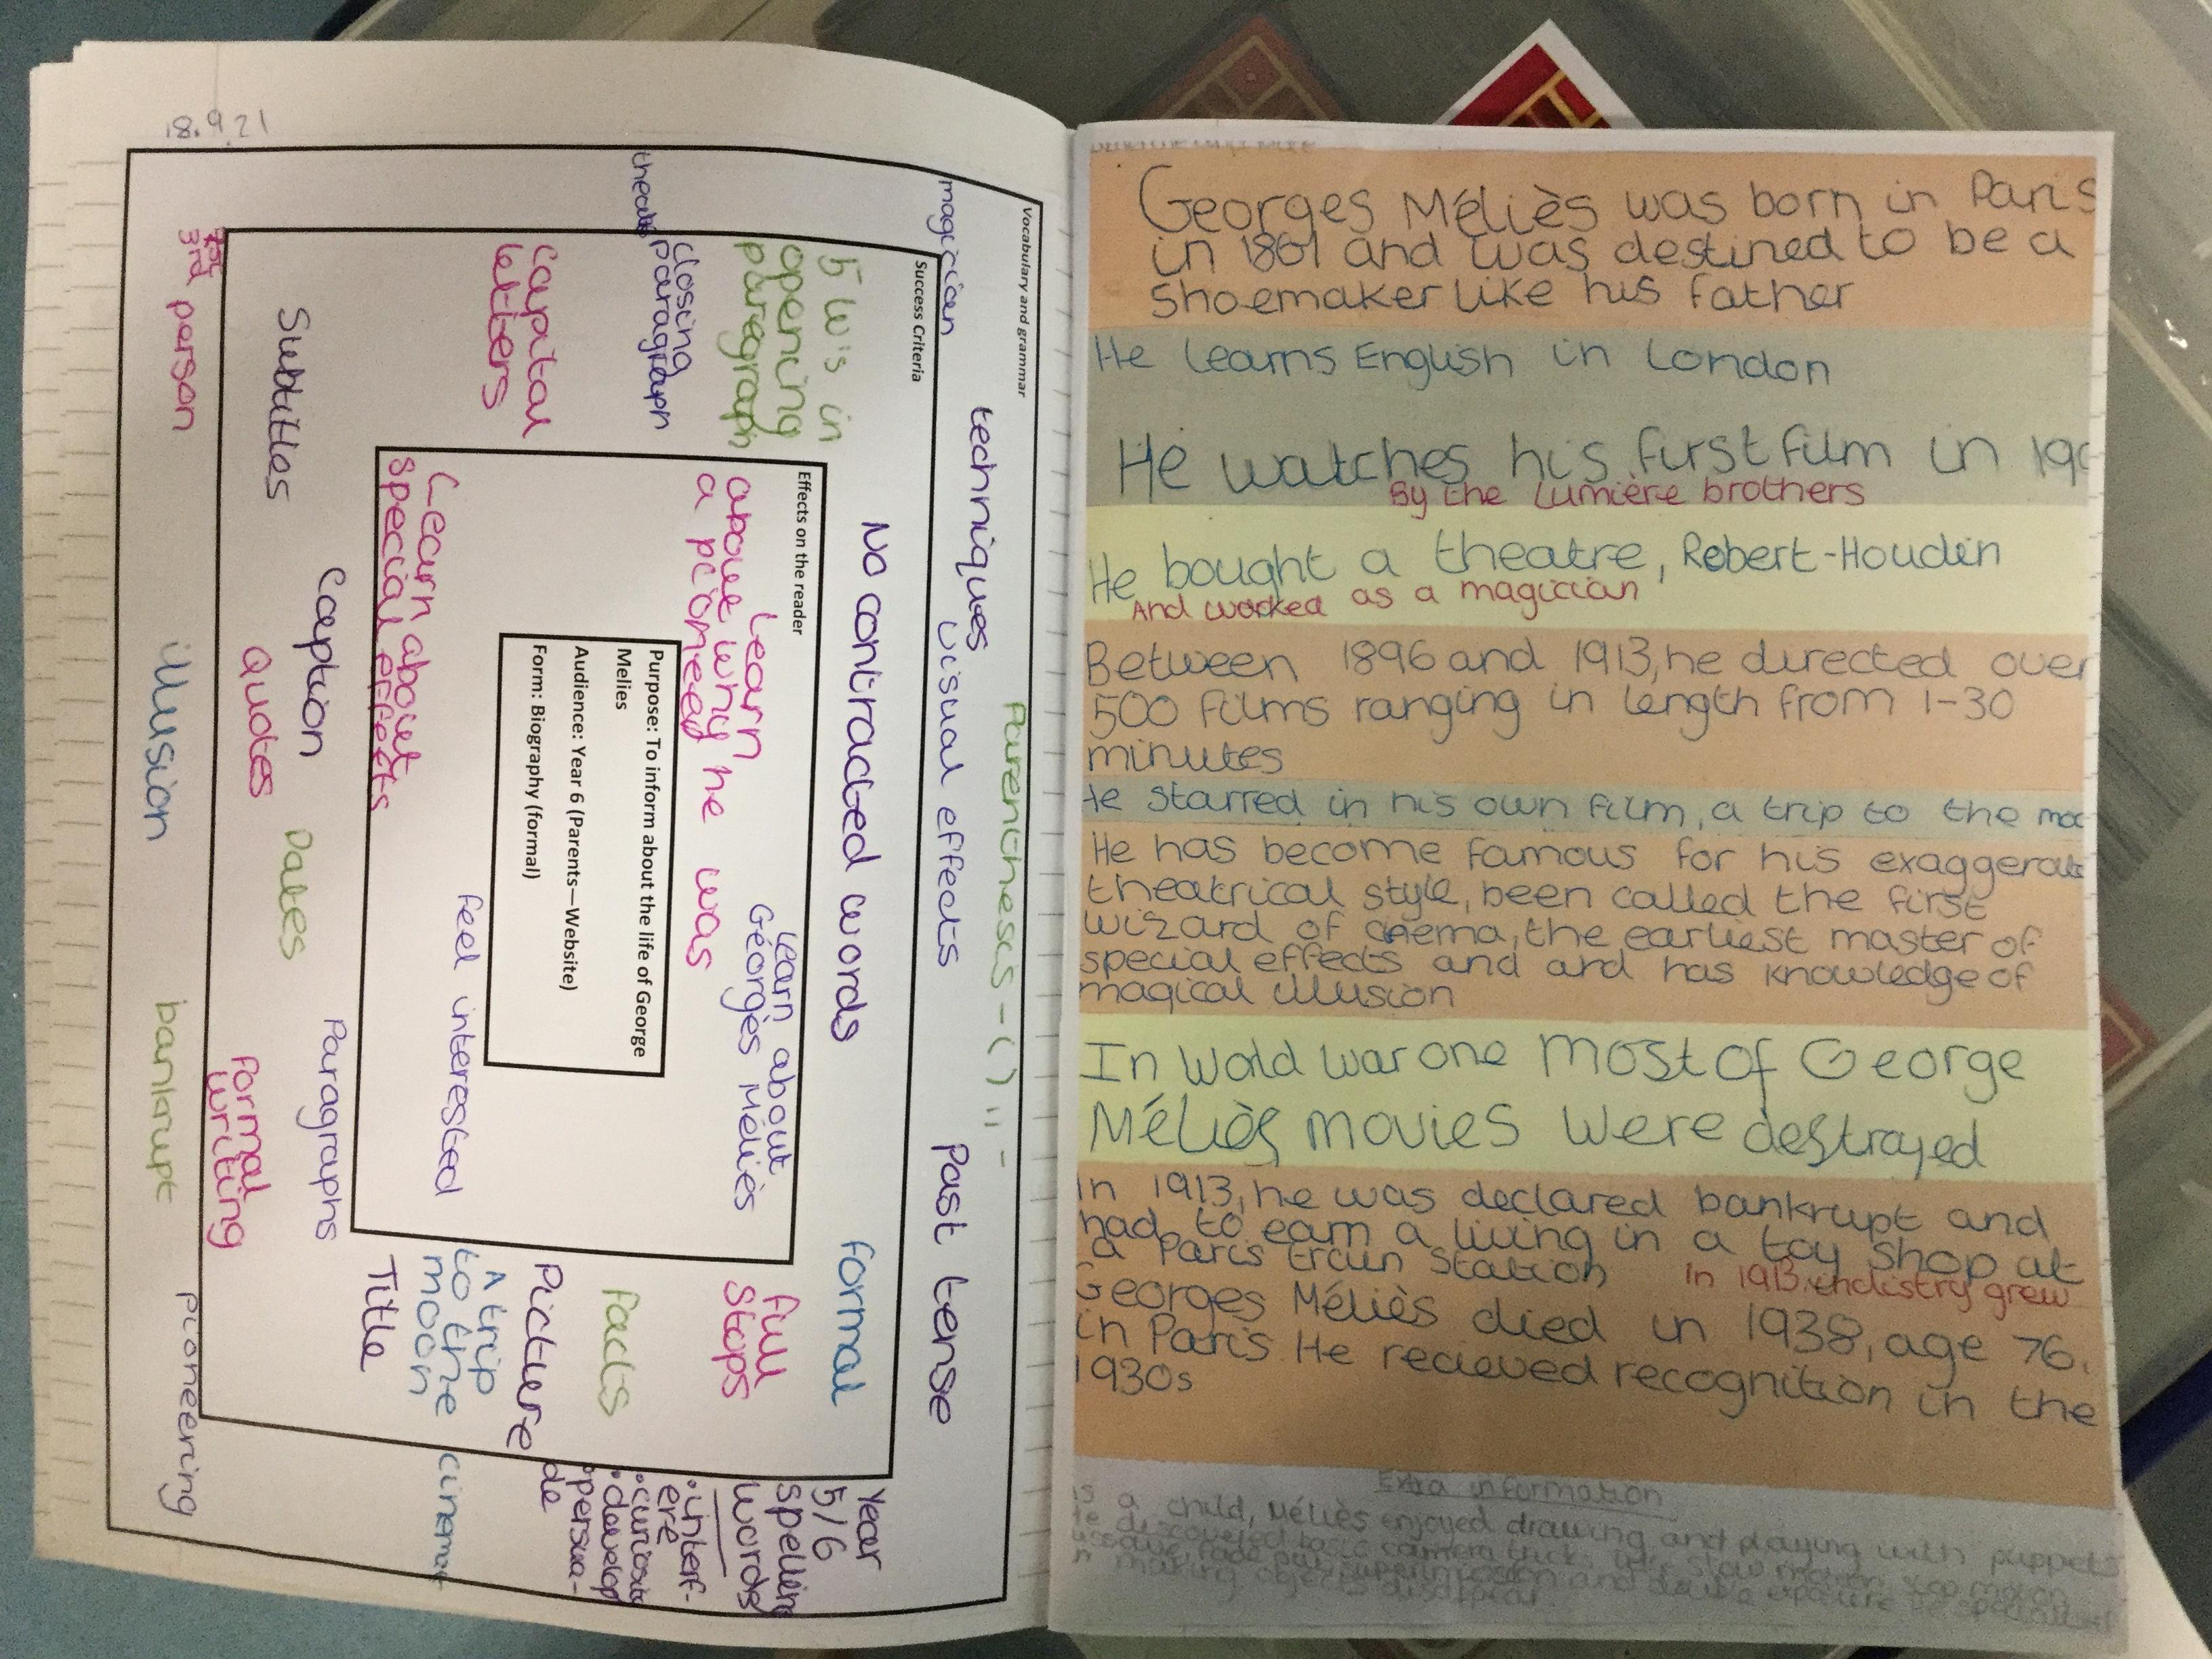 18.9.21
Vocabulary and grammar
magician
techniques
visual effects
Parentheses - ( ) ,, -
Past tense
theatre
3rd person
illusion
bankrupt
pioneering
cinema
Year
5/6
spelling
words
• interf-
ere
• curiosity
• develop
• persua-
de
Success Criteria
5 W's in
opening
paragraph
closing
paragraph
capital
letters
No contracted words
formal
full
stops
facts
Picture
A trip
to the
moon
Title
Subtitles
Caption
Quotes
Dates
Paragraphs
formal
writing
Effects on the reader
Learn
about why he was
a pioneer
Learn about
Georges Méliès
Learn about
special effects
feel interested
Purpose: To inform about the life of George
Melies
Audience: Year 6 (Parents—Website)
Form: Biography (formal)
Georges Méliès was born in Paris
in 1861 and was destined to be a
shoemaker like his father
He learns English in London
He watches his first film in
By the Lumière brothers
He bought a theatre, Robert-Houdin
And worked as a magician
Between 1896 and 1913, he directed over
500 films ranging in length from 1-30
minutes
He starred in his own film, a trip to the moo
He has become famous for his exaggerate
theatrical style, been called the first
wizard of cinema, the earliest master of
special effects and and has knowledge of
magical illusion
In world war one most of George
Méliès movies were destrayed
In 1913, he was declared bankrupt and
had to earn a living in a toy shop at
a Paris train station
In 1913 indistry grew
Georges Méliès died in 1938, age 76,
in Paris. He recieved recognition in the
1930s
Extra information
As a child, Méliès enjoyed drawing and playing with puppets
He discovered basic camera tricks like slow motion, stop motion,
fade out, superimpossion and double exposure he specialised
in making objects dissapear